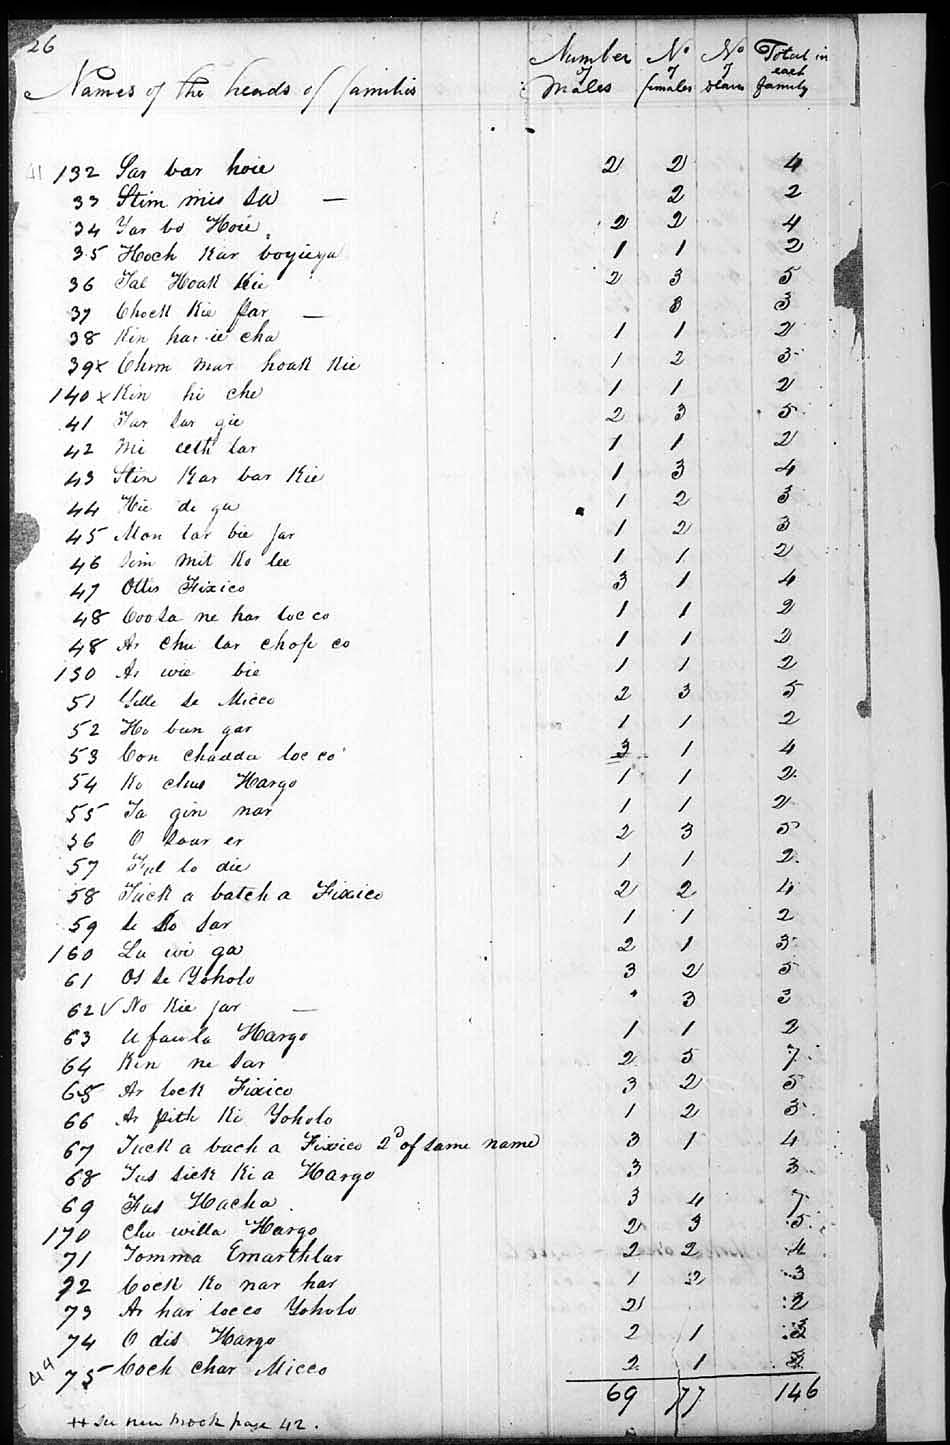 26
Names of the heads of families Number of Males No of females No of slaves Total in each family
41 132 Sar bar hoie 2 2 4
33 Stim mis sa — 2 2
34 Yar bo Hoie 2 2 4
35 Hoch Kar boyieya 1 1 2
36 Tal Hoak Kie 2 3 5
37 Chock Kie par — 3 3
38 Kin har ie cha 1 1 2
39 x Chim mar hoak Kie 1 2 3
140 x Kin hi che 1 1 2
41 Tar sar gie 2 3 5
42 Mi ceth lar 1 1 2
43 Stin Kar bar Kie 1 3 4
44 Hie de ga 1 2 3
45 Mon lar bie jar 1 2 3
46 Sim mit Ko lee 1 1 2
47 Ottis Fixico 3 1 4
48 Coosa ne har locco 1 1 2
48 Ar chu lar chop co 1 1 2
150 Ar wie bie 1 1 2
51 Yille se Micco 2 3 5
52 Ho bun gar 1 1 2
53 Con chadda locco 3 1 4
54 Ko chus Hargo 1 1 2
55 Ta gin nar 1 1 2
56 O saur er 2 3 5
57 Ful lo die 1 1 2
58 Tuck a batch a Fixico 2 2 4
59 Se So sar 1 1 2
160 La wi ga 2 1 3
61 Os se Yoholo 3 2 5
62 ✓ No Kie jar — 3 3
63 U faula Hargo 1 1 2
64 Kin ne sar 2 5 7
65 Ar lock Fixico 3 2 5
66 Ar pith Ki Yoholo 1 2 3
67 Tuck a bach a Fixico 2d of same name 3 1 4
68 Tus sick Ki a Hargo 3 3
69 Fus Hacha 3 4 7
170 Chu willa Hargo 2 3 5
71 Tomma Emarthlar 2 2 4
72 Cock Ko nar har 1 2 3
73 Ar har locco Yoholo 2 2
74 O dis Hargo 2 1 3
75 Coch char Micco 2 1 3
44 69 77 146
++ See new book page 42.